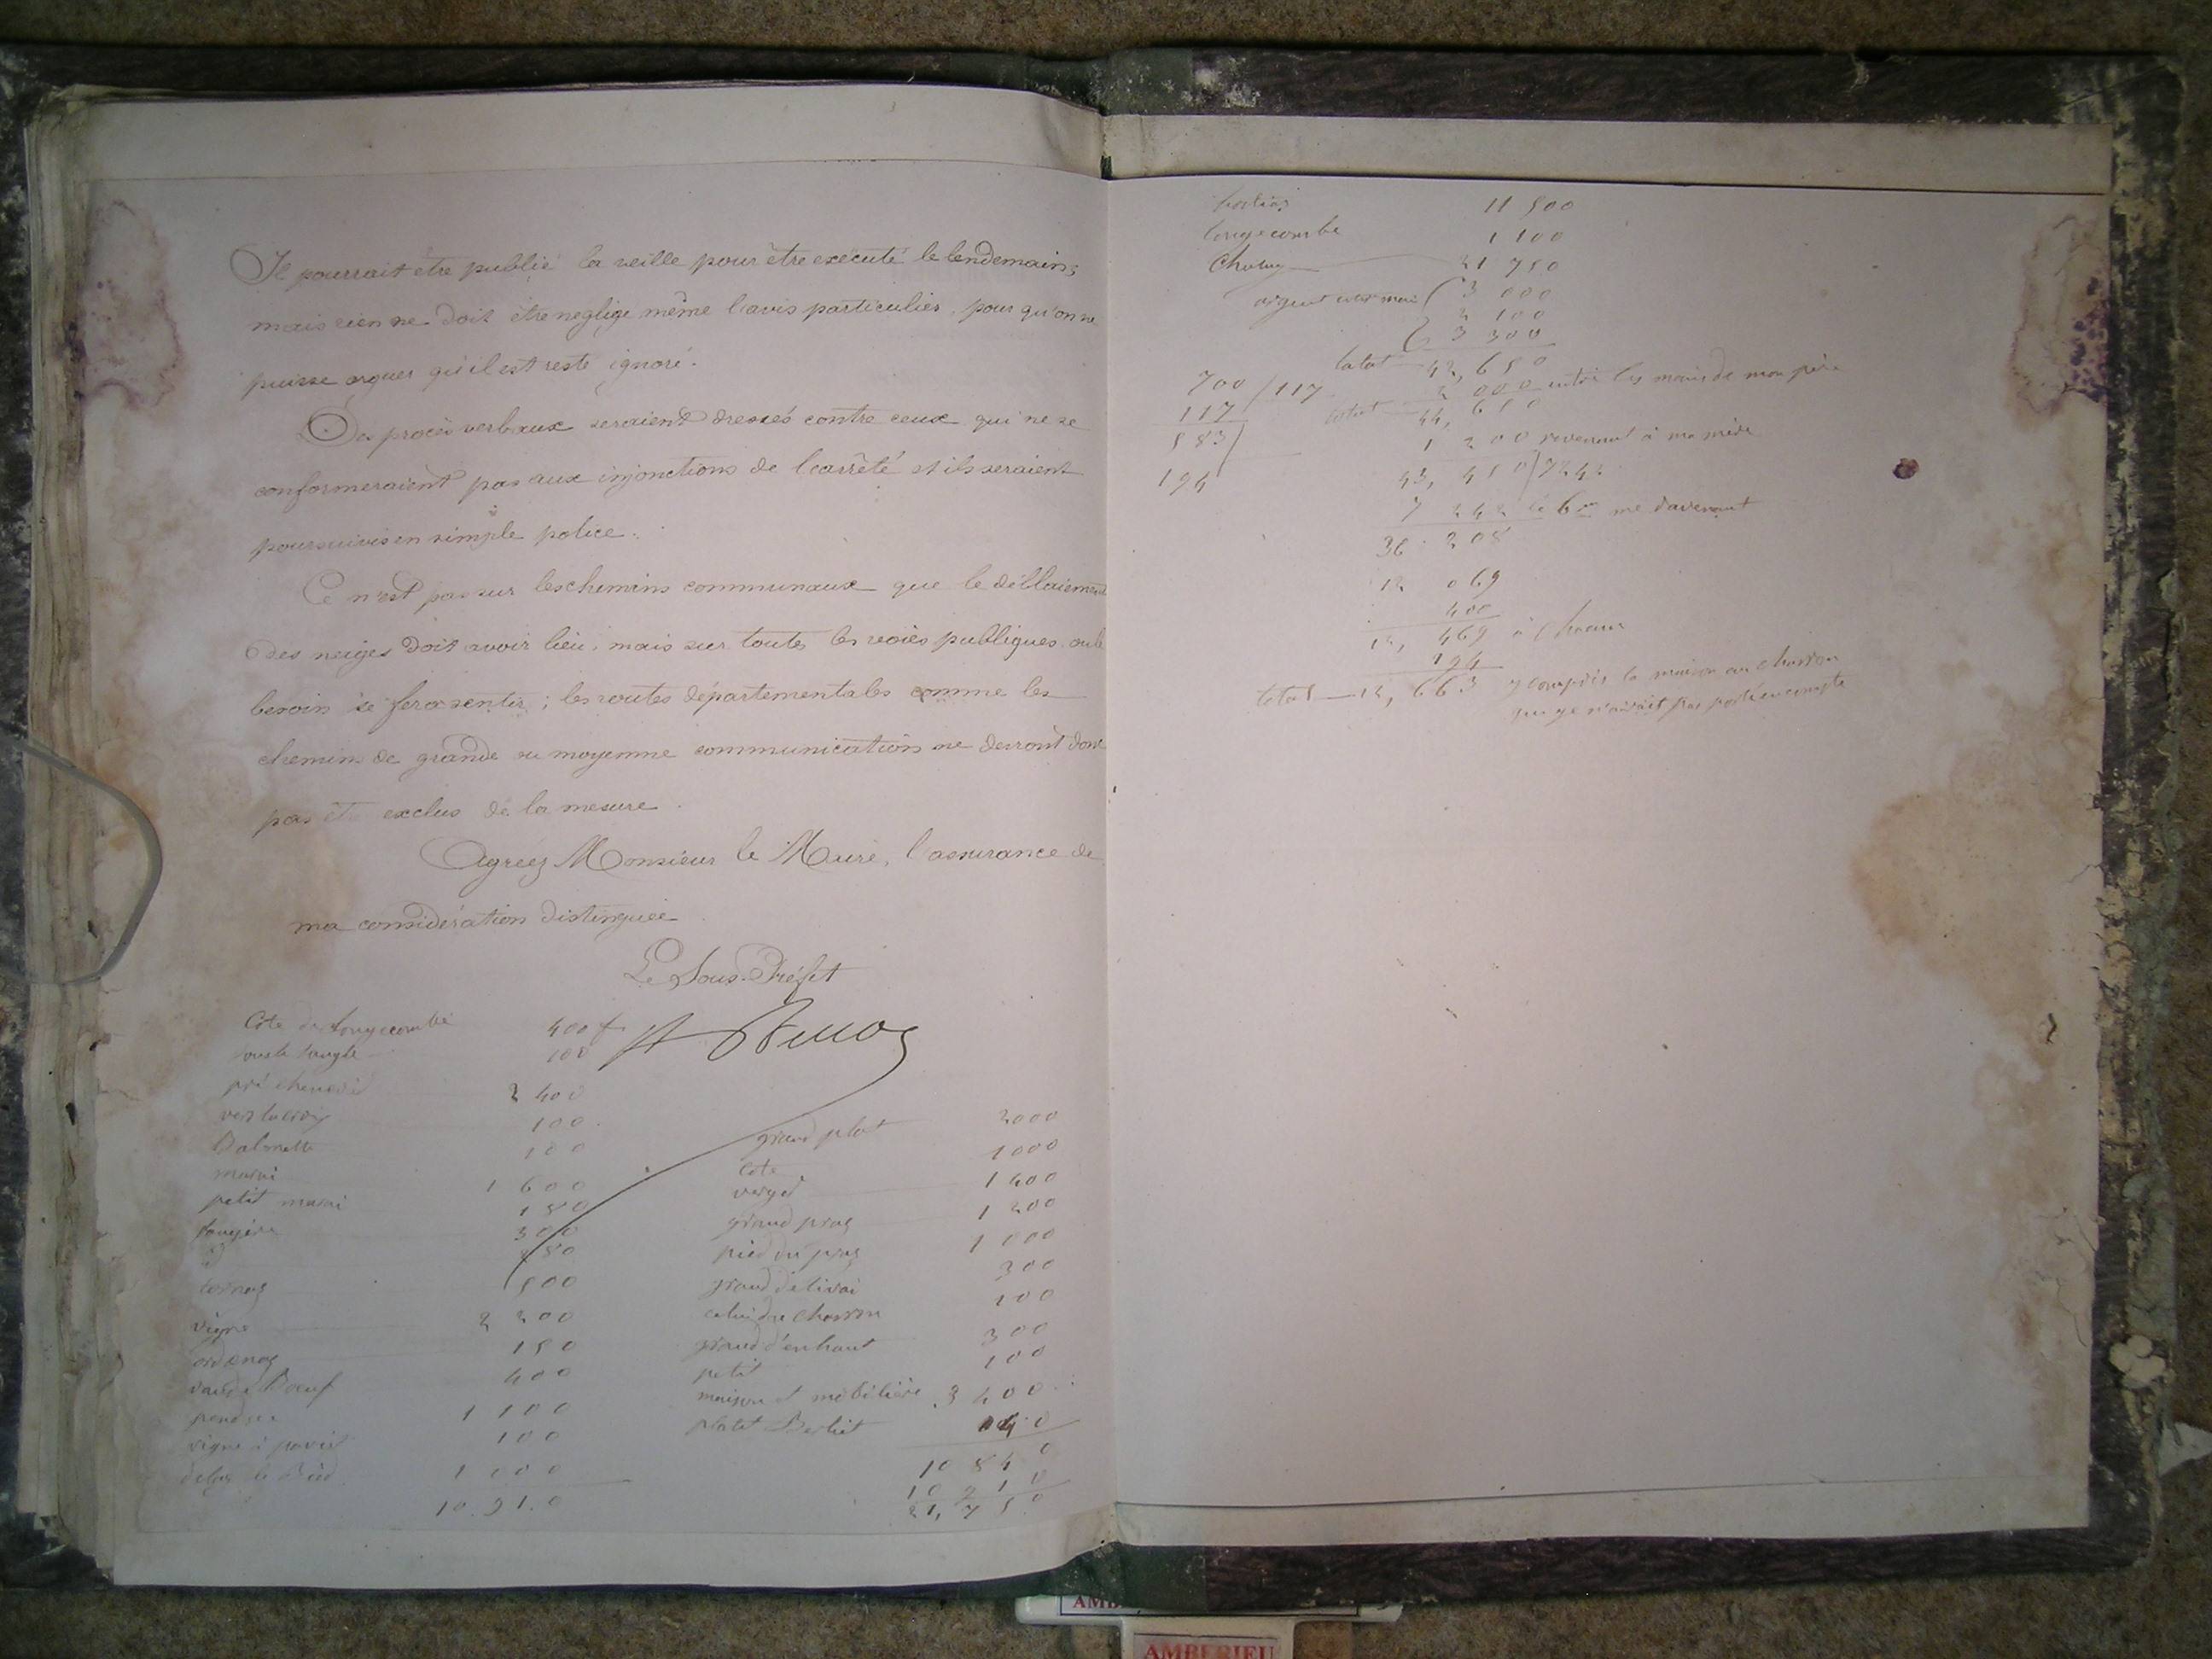 Il pourrait être publié la veille pour être exécuté le lendemain;
mais rien ne doit être negligé même l'avis particulier, pour qu'on ne
puisse arguer qu'il est resté ignoré.
Des procès verbaux seraient dressés contre ceux qui ne se
conformeraient pas aux injonctions de l'arrêté et ils seraient
poursuivis en simple police.
Ce n'est pas sur les chemins communaux que le déblaiement
des neiges doit avoir lieu, mais sur toutes les voies publiques où le
besoin se fera sentir; les routes départementales comme les
chemins de grande ou moyenne communication ne devront donc
pas être exclus de la mesure.
Agréez Monsieur le Maire, l'assurance de
ma considération distinguée
Le Sous-Préfet
Cote de longecombe 400 f
100
pré 2 400
vers la croix 100
100
marai 1 600
petit marai 150
fougère 300
500
vigne 2 200
150
Boeuf 400
1 100
vigne à 100
le Bied 1 000
10.910
grand plat 2000
cote 1000
verger 1400
grand 1 200
pied du 1 000
grand 300
celui du Charron 100
grand d'en haut 300
petit 100
maison et mobilière 3 400
Berliet
10 840
10 910
21,750
11 500
longecombe 1 100
21 750
argent 3 000
2 100
3 300
total 42,650
2 000 entre les mains de mon père
total 44,650
1 200 revenant à ma mère
43,450 / 7242
7 242 le 6me me davenant
36 208
12 069
400
12,469 à chacun
194
total 12,663 y compris la maison au charron
que je n'avait pas porté en compte
700 / 117
117
583
194
AMB
AMBERIEU